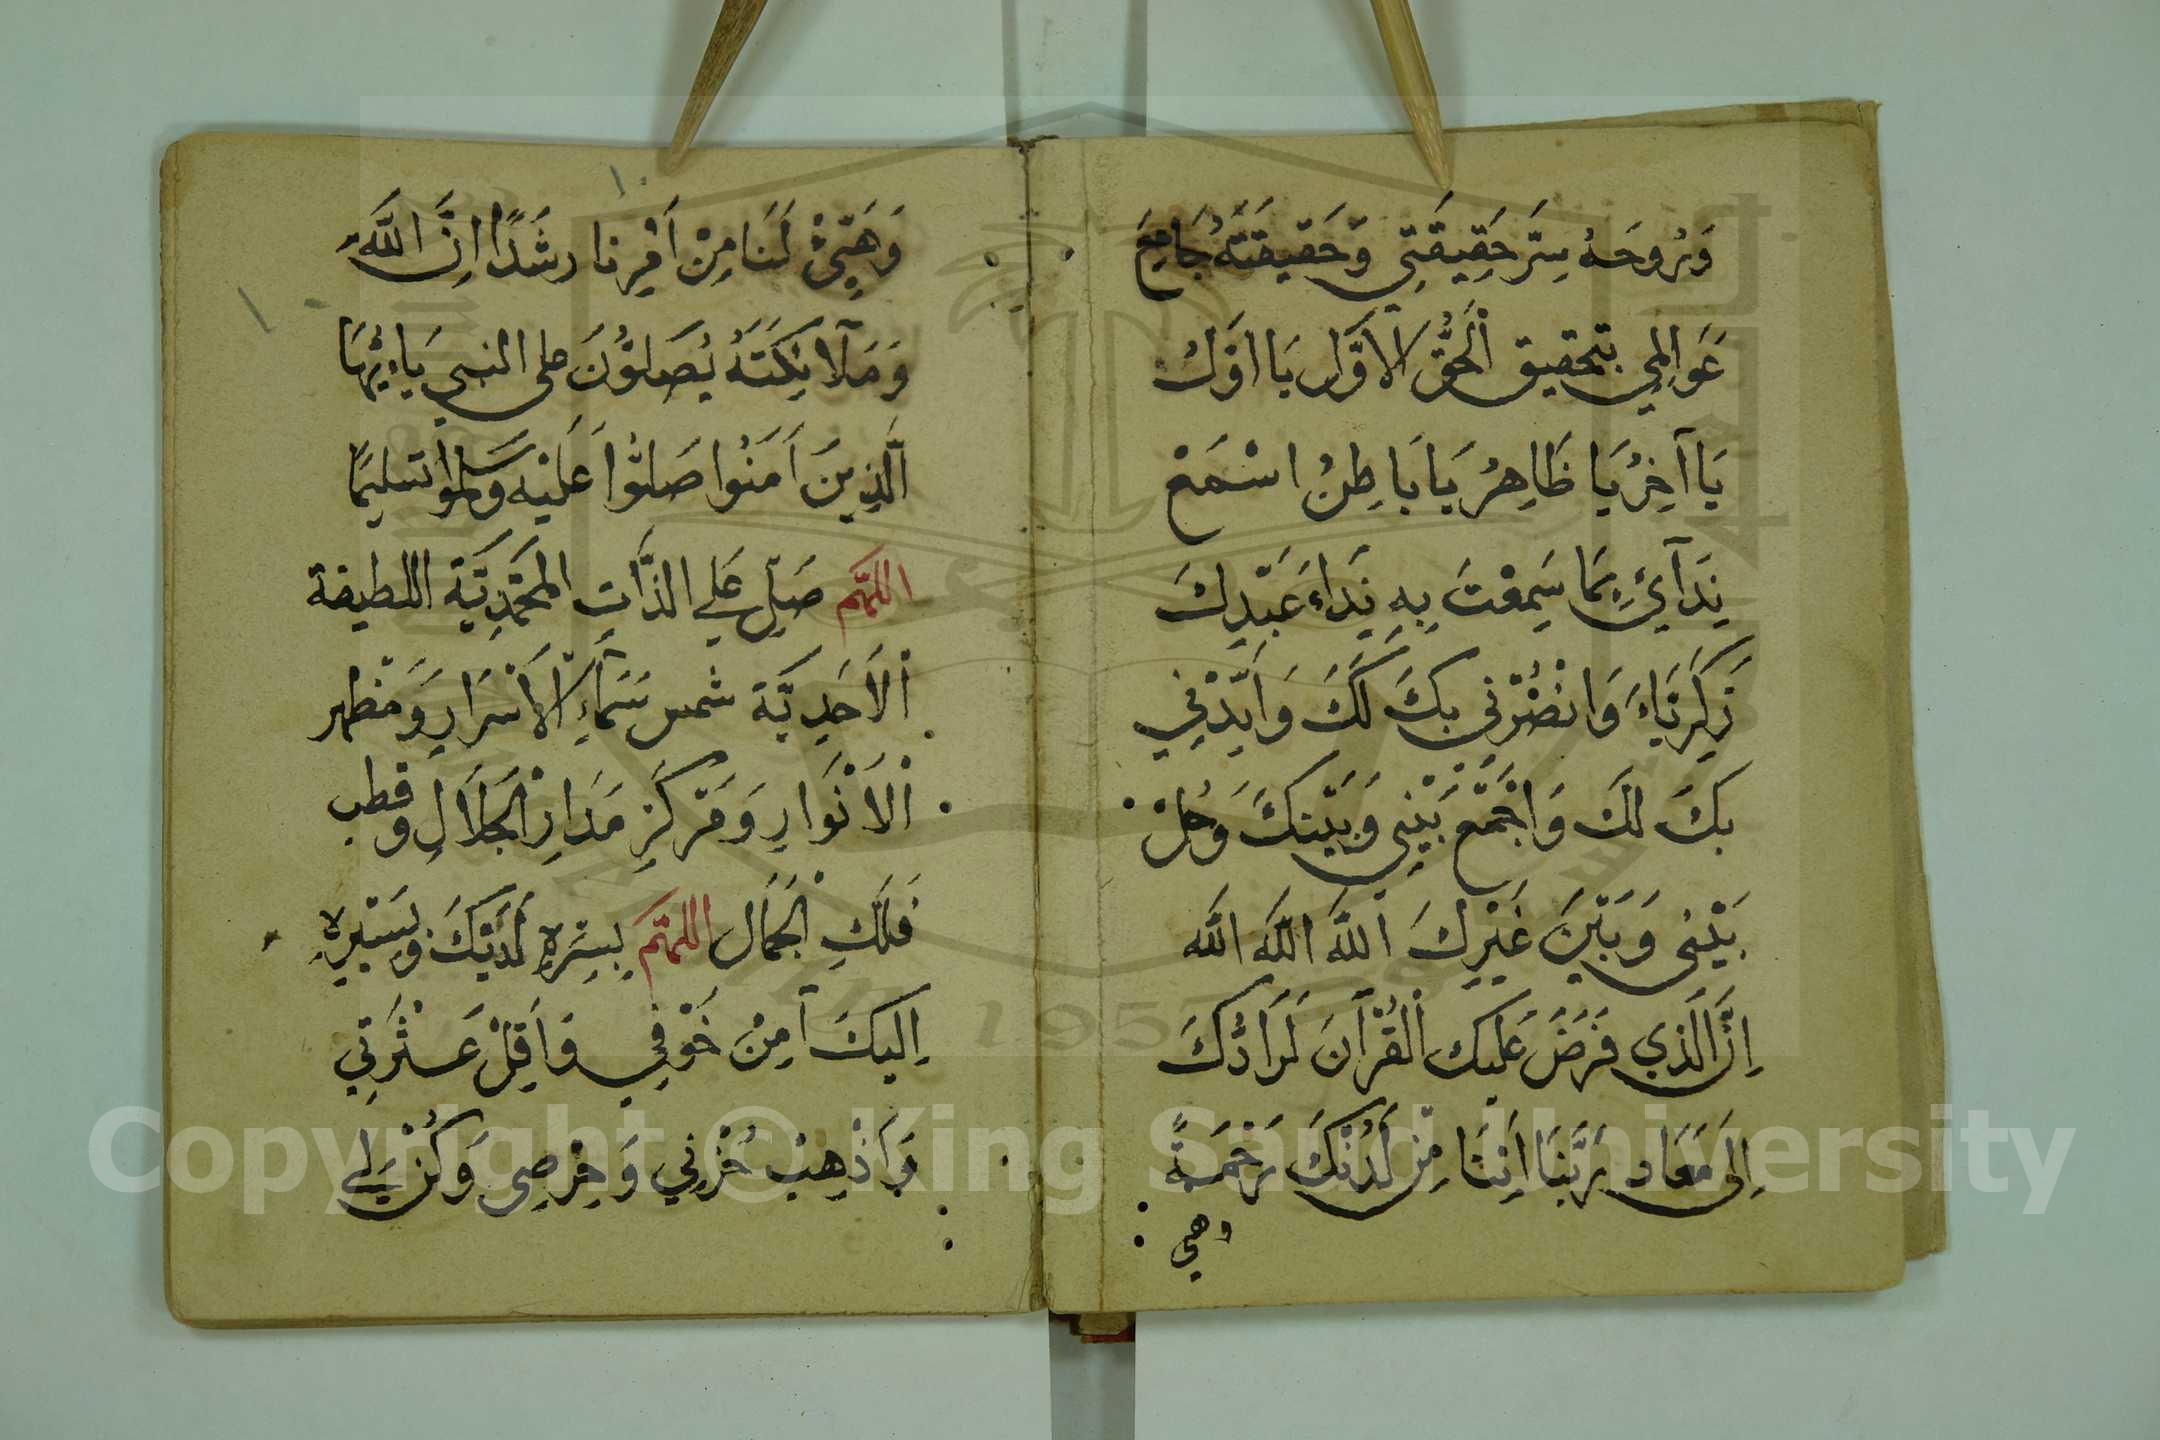 وَرُوحَهُ سِرَّ حَقِيقَتِي وَحَقِيقَتَهُ جَامِعَ
عَوَالِمِي بتحقيق الْحَقِّ الاَوَّل يَا اَوَّلُ
يَا آخِرُ يَا ظَاهِرُ يَا بَاطِنُ اسْمَعْ
نِدَآئِي بِمَا سَمِعْتَ بِهِ نِدَاءَ عَبْدِكَ
زَكَرِيَّاءَ وَانْصُرْنِي بِكَ لَكَ وَاَيِّدْنِي
بكَ لَكَ وَاجْمَعْ بَيْنِي وَبَيْنَكَ وَحُلْ
بَيْنِي وَبَيْنَ غَيْرِكَ اللَّه اللَّه اللَّه
اِنَّ الَّذِي فَرَضَ عَلَيك الْقُرْآنَ لَرَادُّكَ
اِلَى مَعَاد رَبَّنَا اَتِنَا مِن لَّدُنْكَ رَحْمَةً
وهي
وَهَيِّئْ لَنَا مِنْ اَمْرِنا رشَدًا اِنَّ اللَّهَ
وَمَلآئِكَتَهُ يُصَلوُّنَ على النبي يَا اَيُّهَا
الَّذِينَ اَمَنُوا صَلُّوا عَلَيْهِ وَسلموا تسليمًا
اللهُمَّ صَلِّ عَلي الذَّاتِ المحَمَّدِيَّة اللطيفة
الْاَحَدِيَّة شمس سَمَاءِ الاَسْرَارِ وَمَظهر
الْاَنْوَارِ وَمَرْكَزِ مَدَارِ الْجَلاَلِ وقطب
فَلَكِ الْجَمَال اللهُمَّ بِسِرِّهِ لَدَيْكَ وبسَيْرِهِ
اِليكَ آمِنْ خَوْفِي وَاَقِلْ عَثْرَتِي
وَاَذْهِبْ حُزْنِي وَحِرْصِي وَكُن لِي
Copyright © King Saud University
1957